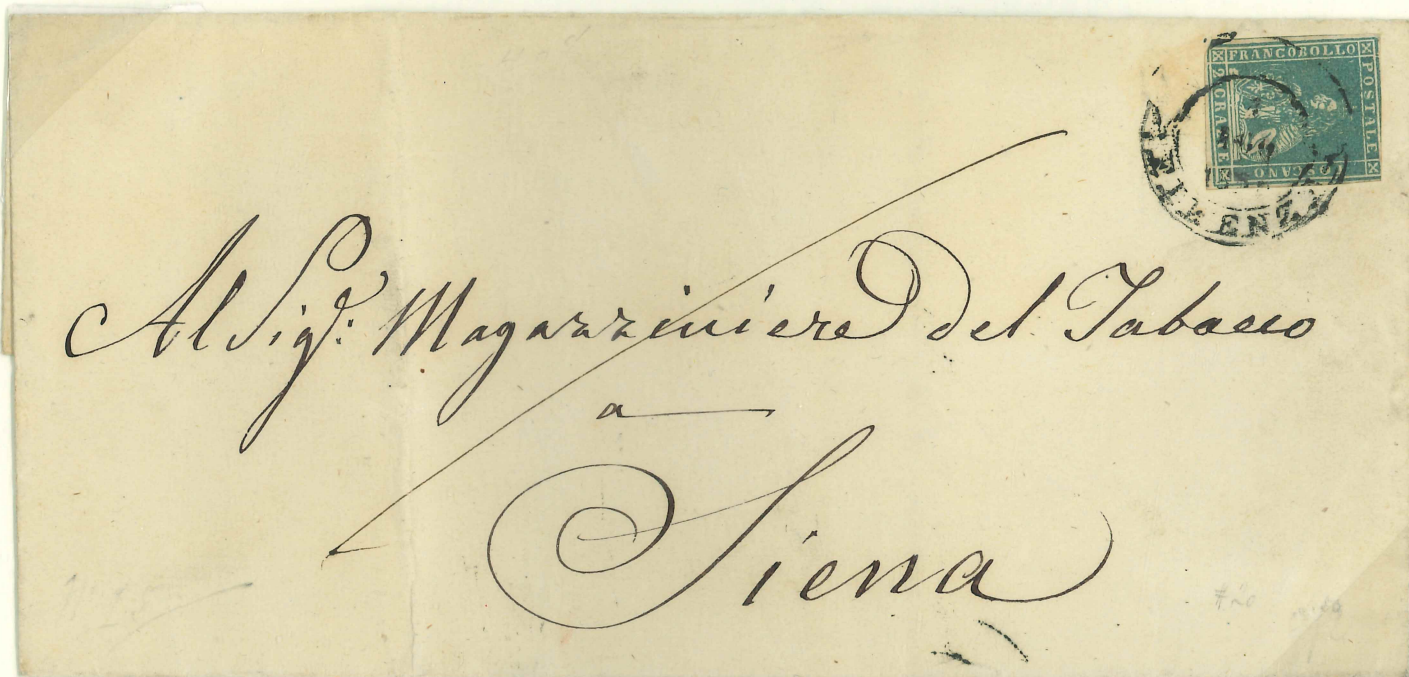 FRANCOBOLLO
POSTALE
TOSCANO
2 CRAZIE
FIRENZE
Al Sigr: Magazziniere Del Tabacco
a
Siena